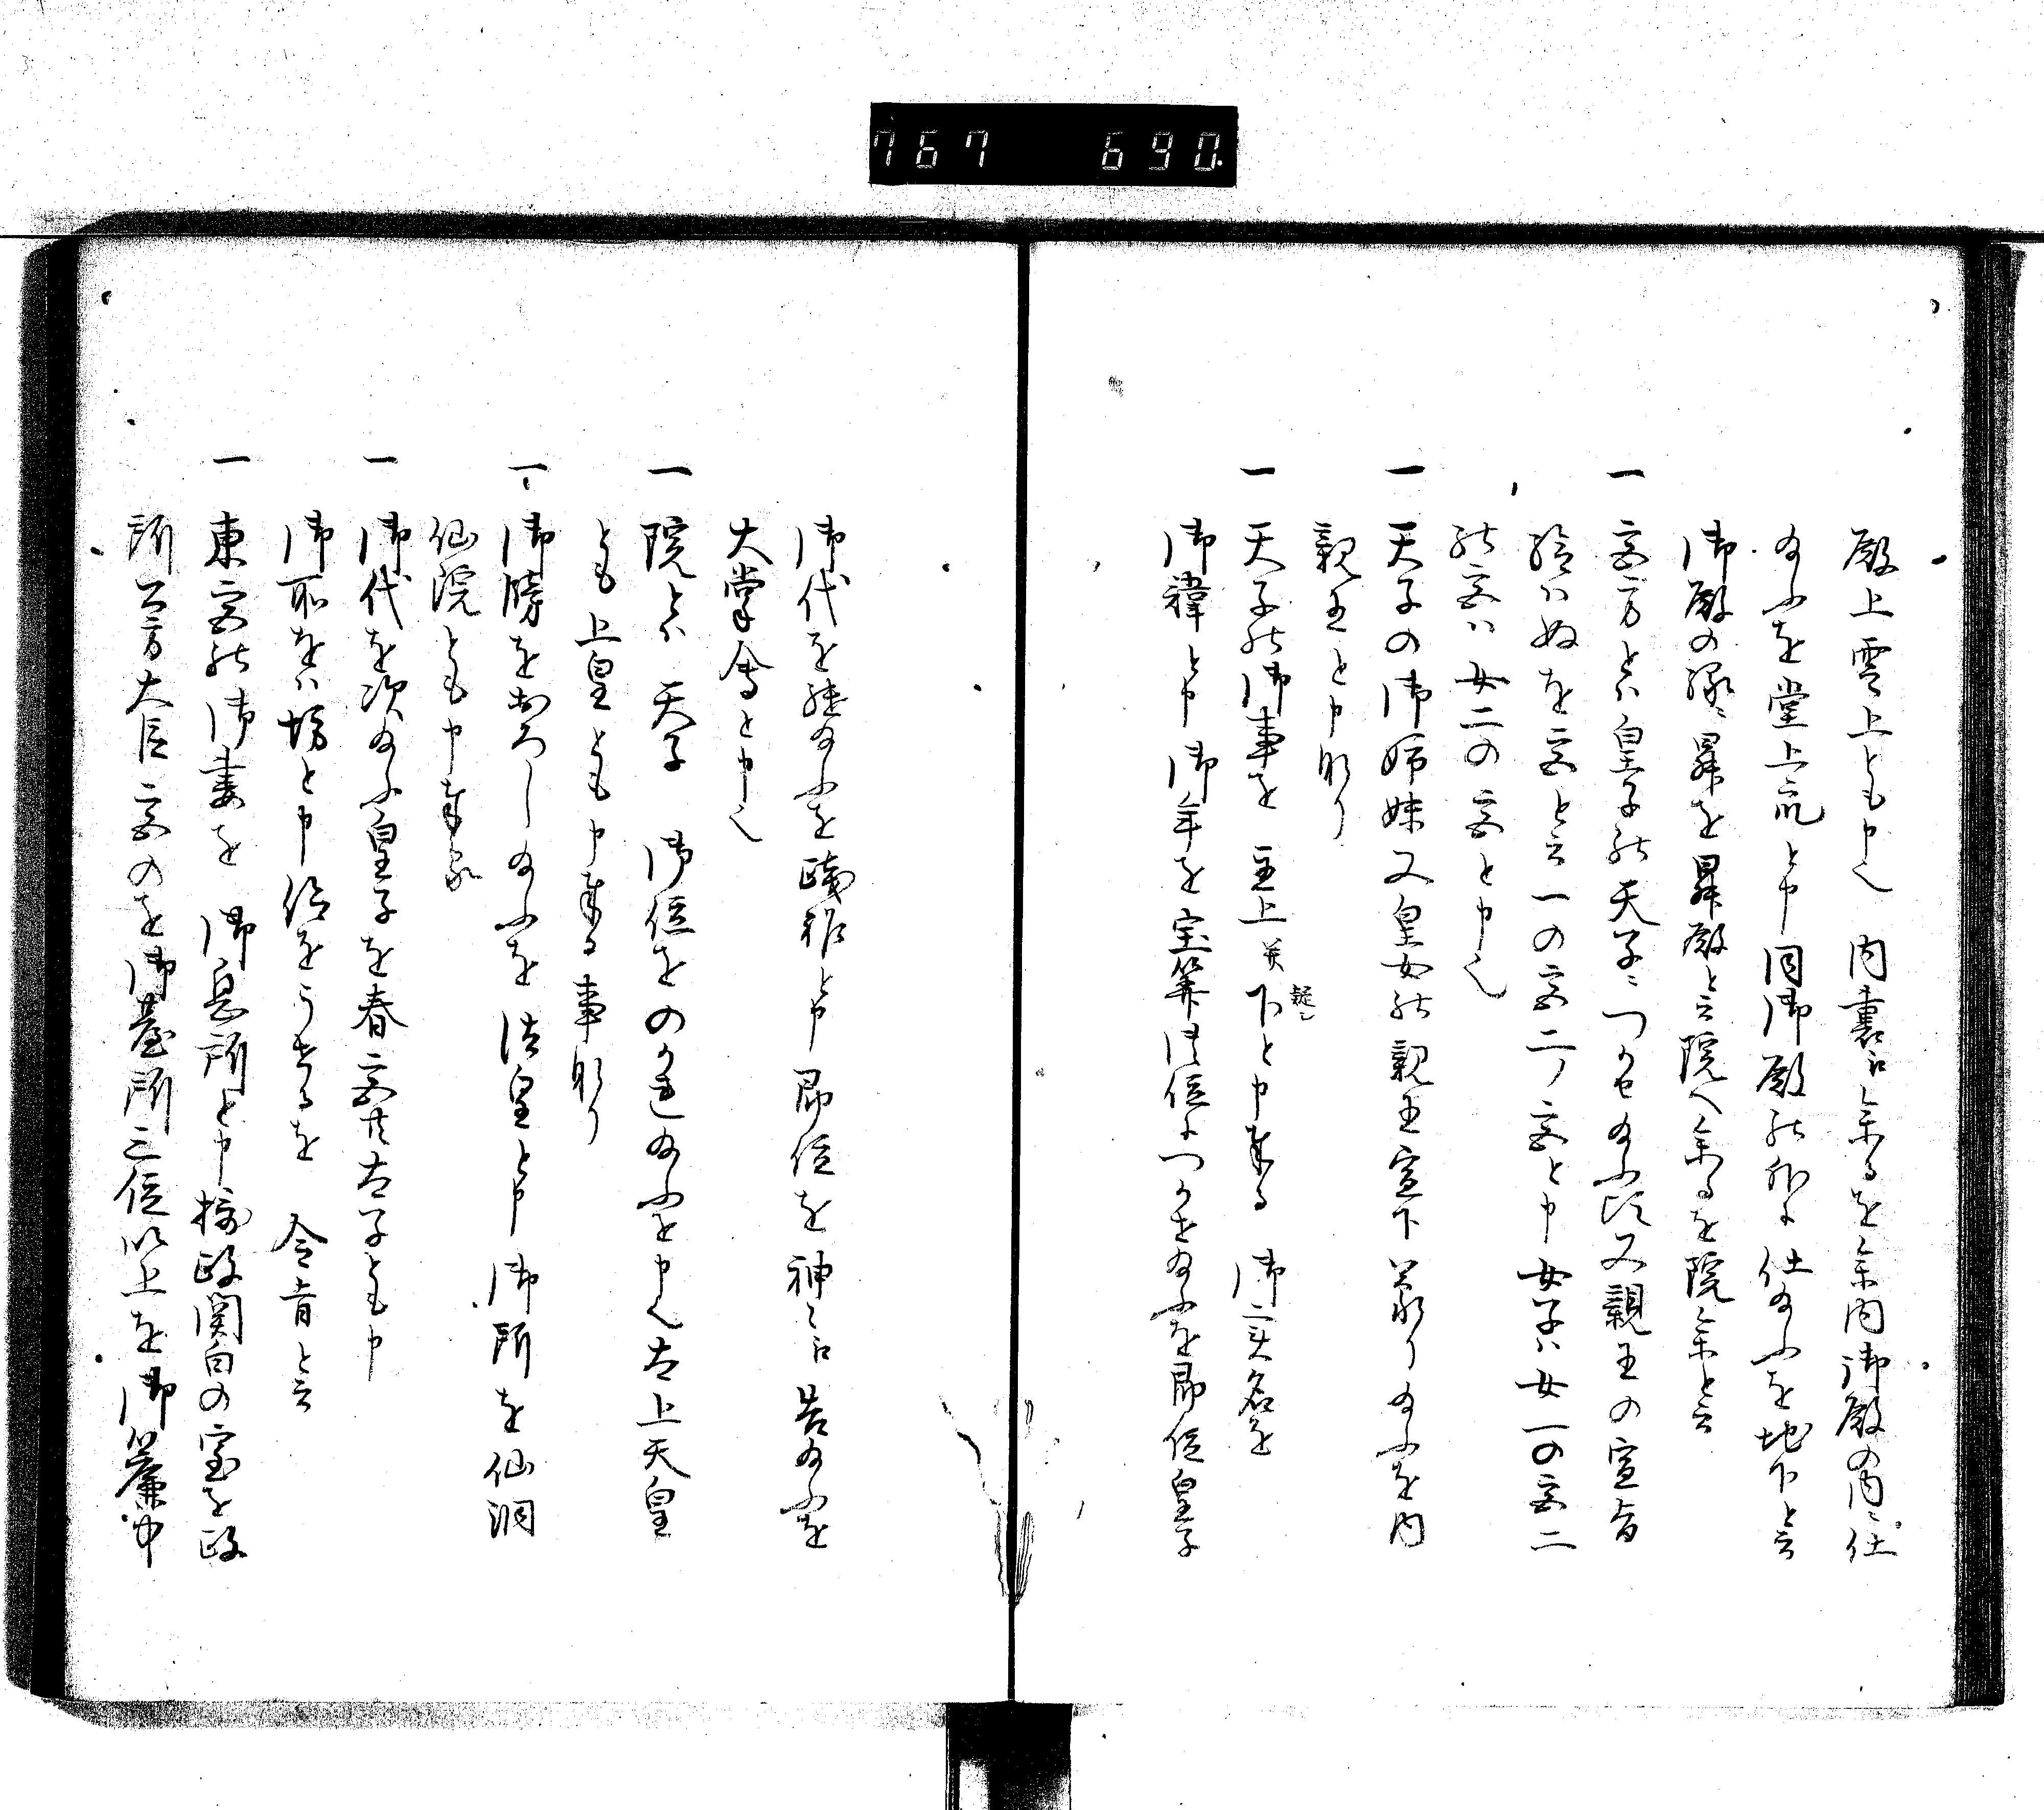 767 690.
殿上雲上とも申也 内裏江参るを参内御殿の内ニ仕
給ふを堂上司と申同御殿の外に仕給ふを地下と云
御殿の縁ニ昇を昇殿と云院へ参るを院参と云
一 宮方とハ皇子の天子ニつかせ給ふ以又親王の宣旨
給ハぬを宮と云一の宮二ノ宮と申女子ハ女一の宮二
の宮ハ女二の宮と申也
一 天子の御姉妹又皇女の親王宣下蒙り給ふを内
親王と申なり
一 天子の御事を 主上并下と申奉る 御実名を
疑し
御諱と申御年を宝算御位につかせ給ふを即位皇子
御代を継給ふを践祚と申即位を神々江告給ふを
大掌会と申也
一 院とハ 天子 御位をのかれ給ふを申也太上天皇
とも上皇とも申奉る事なり
一 御髪をおろし給ふを 法皇と申 御所を仙洞
仙院とも申奉る
一 御代を次給ふ皇子を春宮共太子とも申
御所をハ坊と申位をうけるを 令旨と云
一 東宮の御妻を 御息所と申摂政関白の室を政
所公方大臣家のを御台所三位以上を御簾中